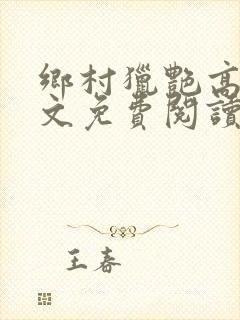 鄉村獵艷高
文免費閱讀
王春